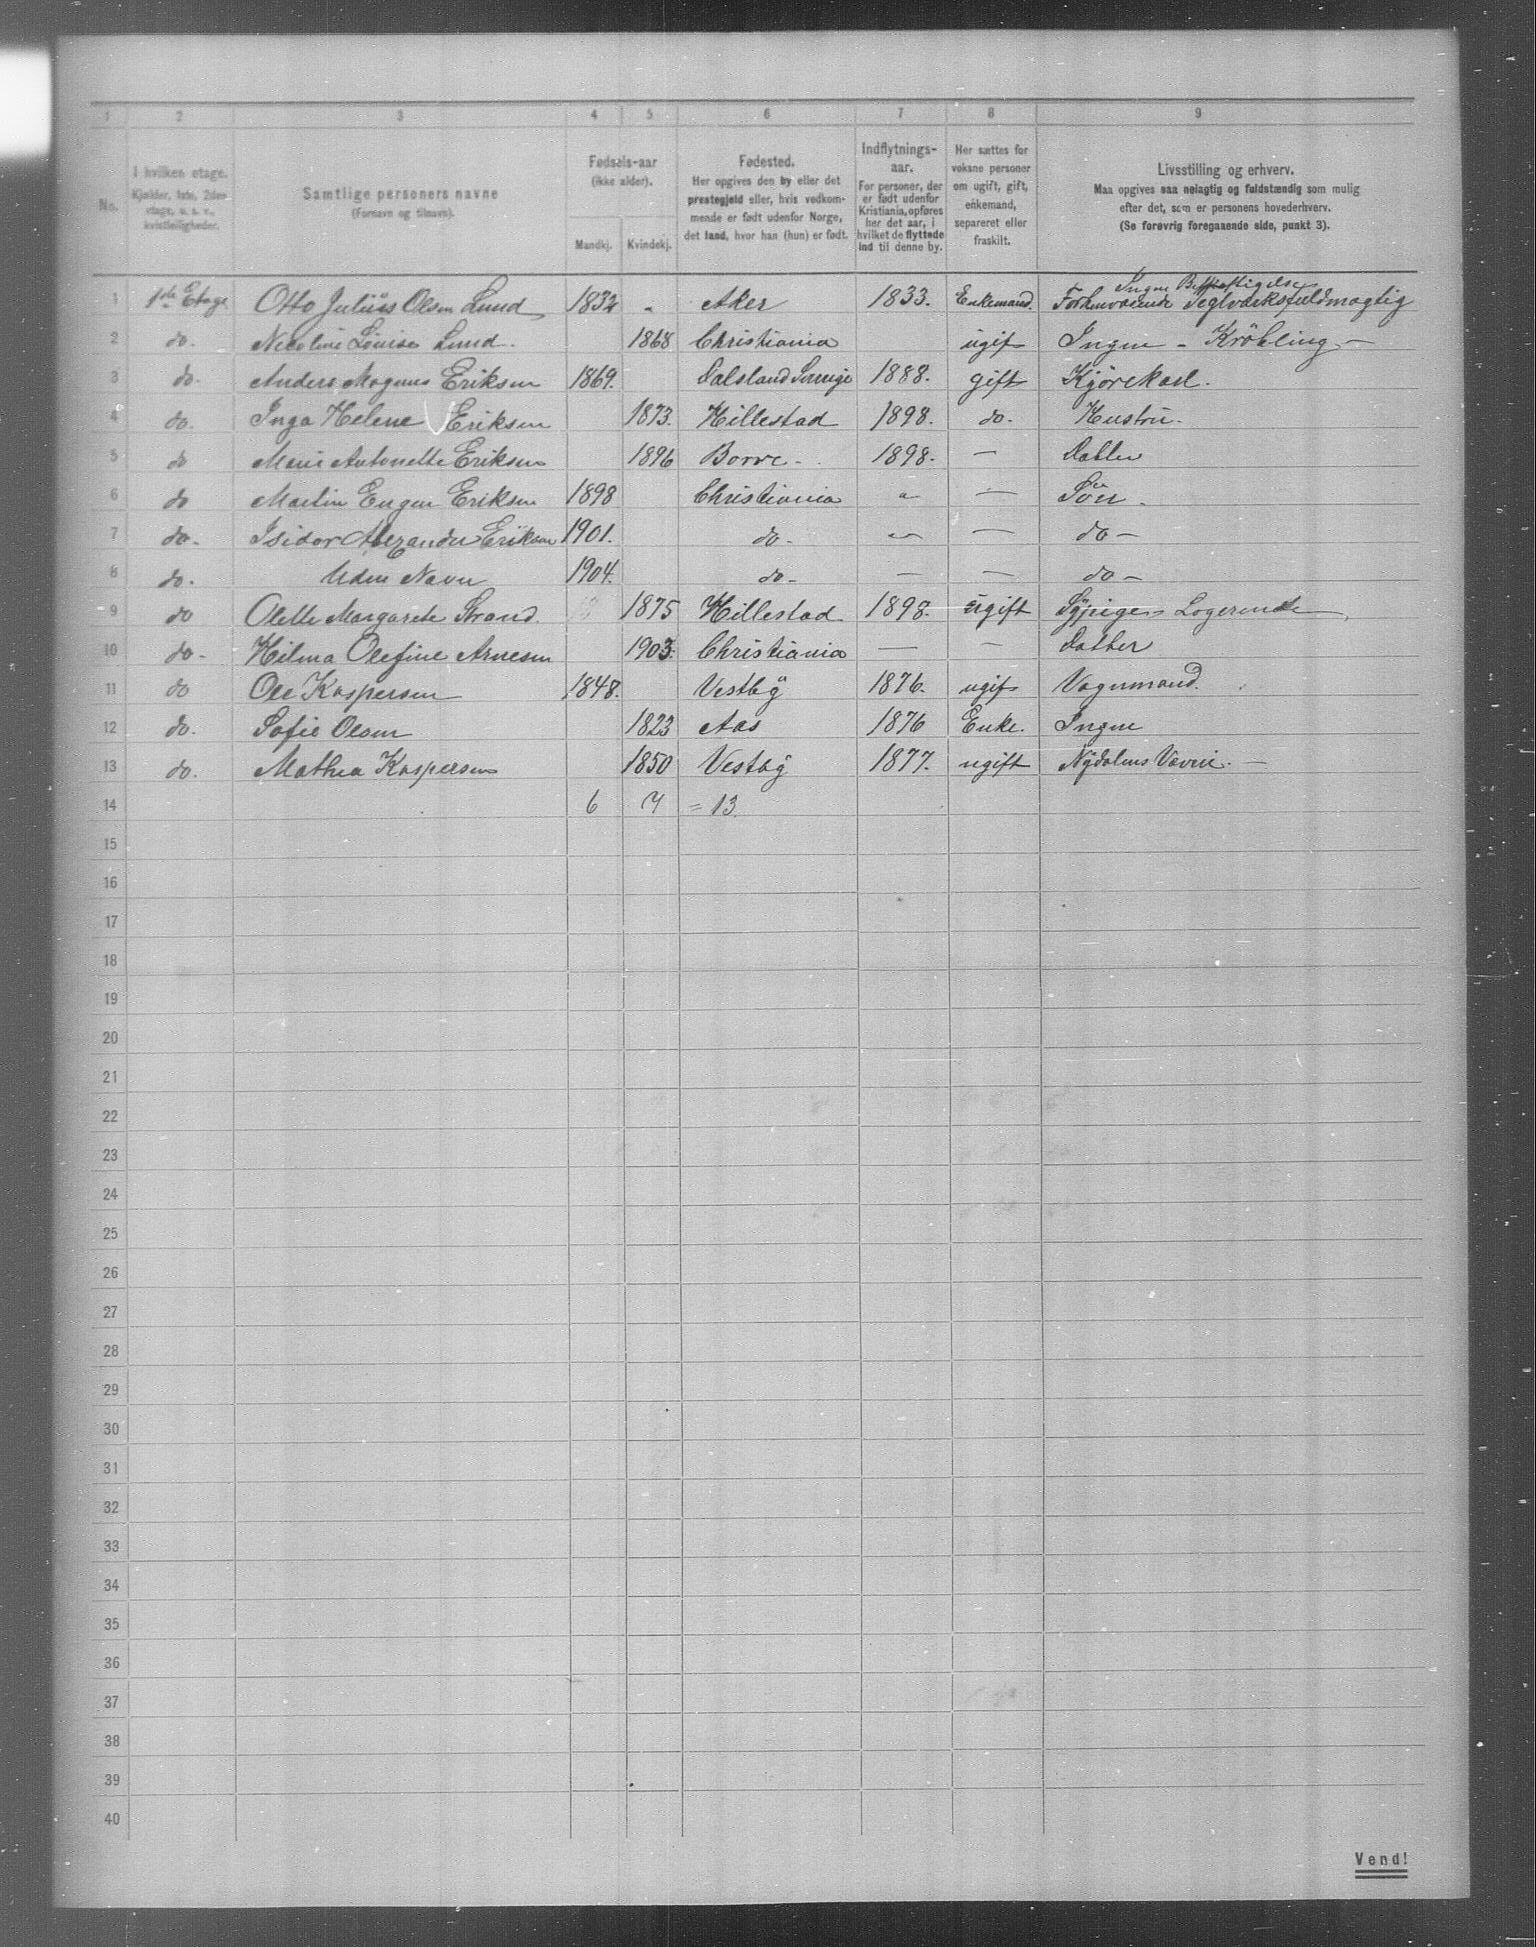 1 2 3 4 5 6 7 8 9
No.
I hvilken etage.
Kjælder, 1ste, 2den
etage, o. s. v.,
kvistleiligheder.
Samtlige personers navne
(Fornavn og tilnavn).
Fødsels-aar
(ikke alder).
Mandkj. Kvindekj.
Fødested.
Her opgives den by eller det
prestegjeld eller, hvis vedkom-
mende er født udenfor Norge,
det land, hvor han (hun) er født.
Indflytnings-
aar.
For personer, der
er født udenfor
Kristiania, opføres
her det aar, i
hvilket de flyttede
ind til denne by.
Her sættes for
voksne personer
om ugift, gift,
enkemand,
separeret eller
fraskilt.
Livsstilling og erhverv.
Maa opgives saa nøiagtig og fuldstændig som mulig
efter det, som er personens hovederhverv.
(Se forøvrig foregaaende side, punkt 3).
Ingen Beskjæftigelse
1 1ste Etage Otto Julius Olsen Lund 1832 " Aker 1833. Enkemand. Forhenværende Teglværksfuldmægtig
2 do. Nicoline Louise Lund. 1868 Christiania ugift Ingen - Kröbling -
3 do. Anders Magnus Eriksen 1869. Dalsland Sverige 1888. gift Kjörekarl.
4 do. Inga Helene Eriksen 1873. Hillestad 1898. do. Hustru.
5 do Marie Antonette Eriksen 1896 Borre - 1898. — Datter
6 do Martin Eugen Eriksen 1898 Christiania " — Sön.
7 do. Isidor Alexander Eriksen 1901. do. — — do —
8 do. Uden Navn 1904. do. — — do —
9 do Olette Margarete Strand. 1875 Hillestad 1898. ugift Sypige Logerende
10 do. Hilma Olefine Arnesen 1903. Christiania — — Datter
11 do Ole Kaspersen 1848. Vestby 1876. ugift Vognmand.
12 do. Sofie Olsen 1823 Aas 1876 Enke. Ingen
13 do. Mathea Kaspersen 1850 Vestby 1877. ugift Nydalens Væveri. —
14 6 7 = 13
15
16
17
18
19
20
21
22
23
24
25
26
27
28
29
30
31
32
33
34
35
36
37
38
39
40
Vend!